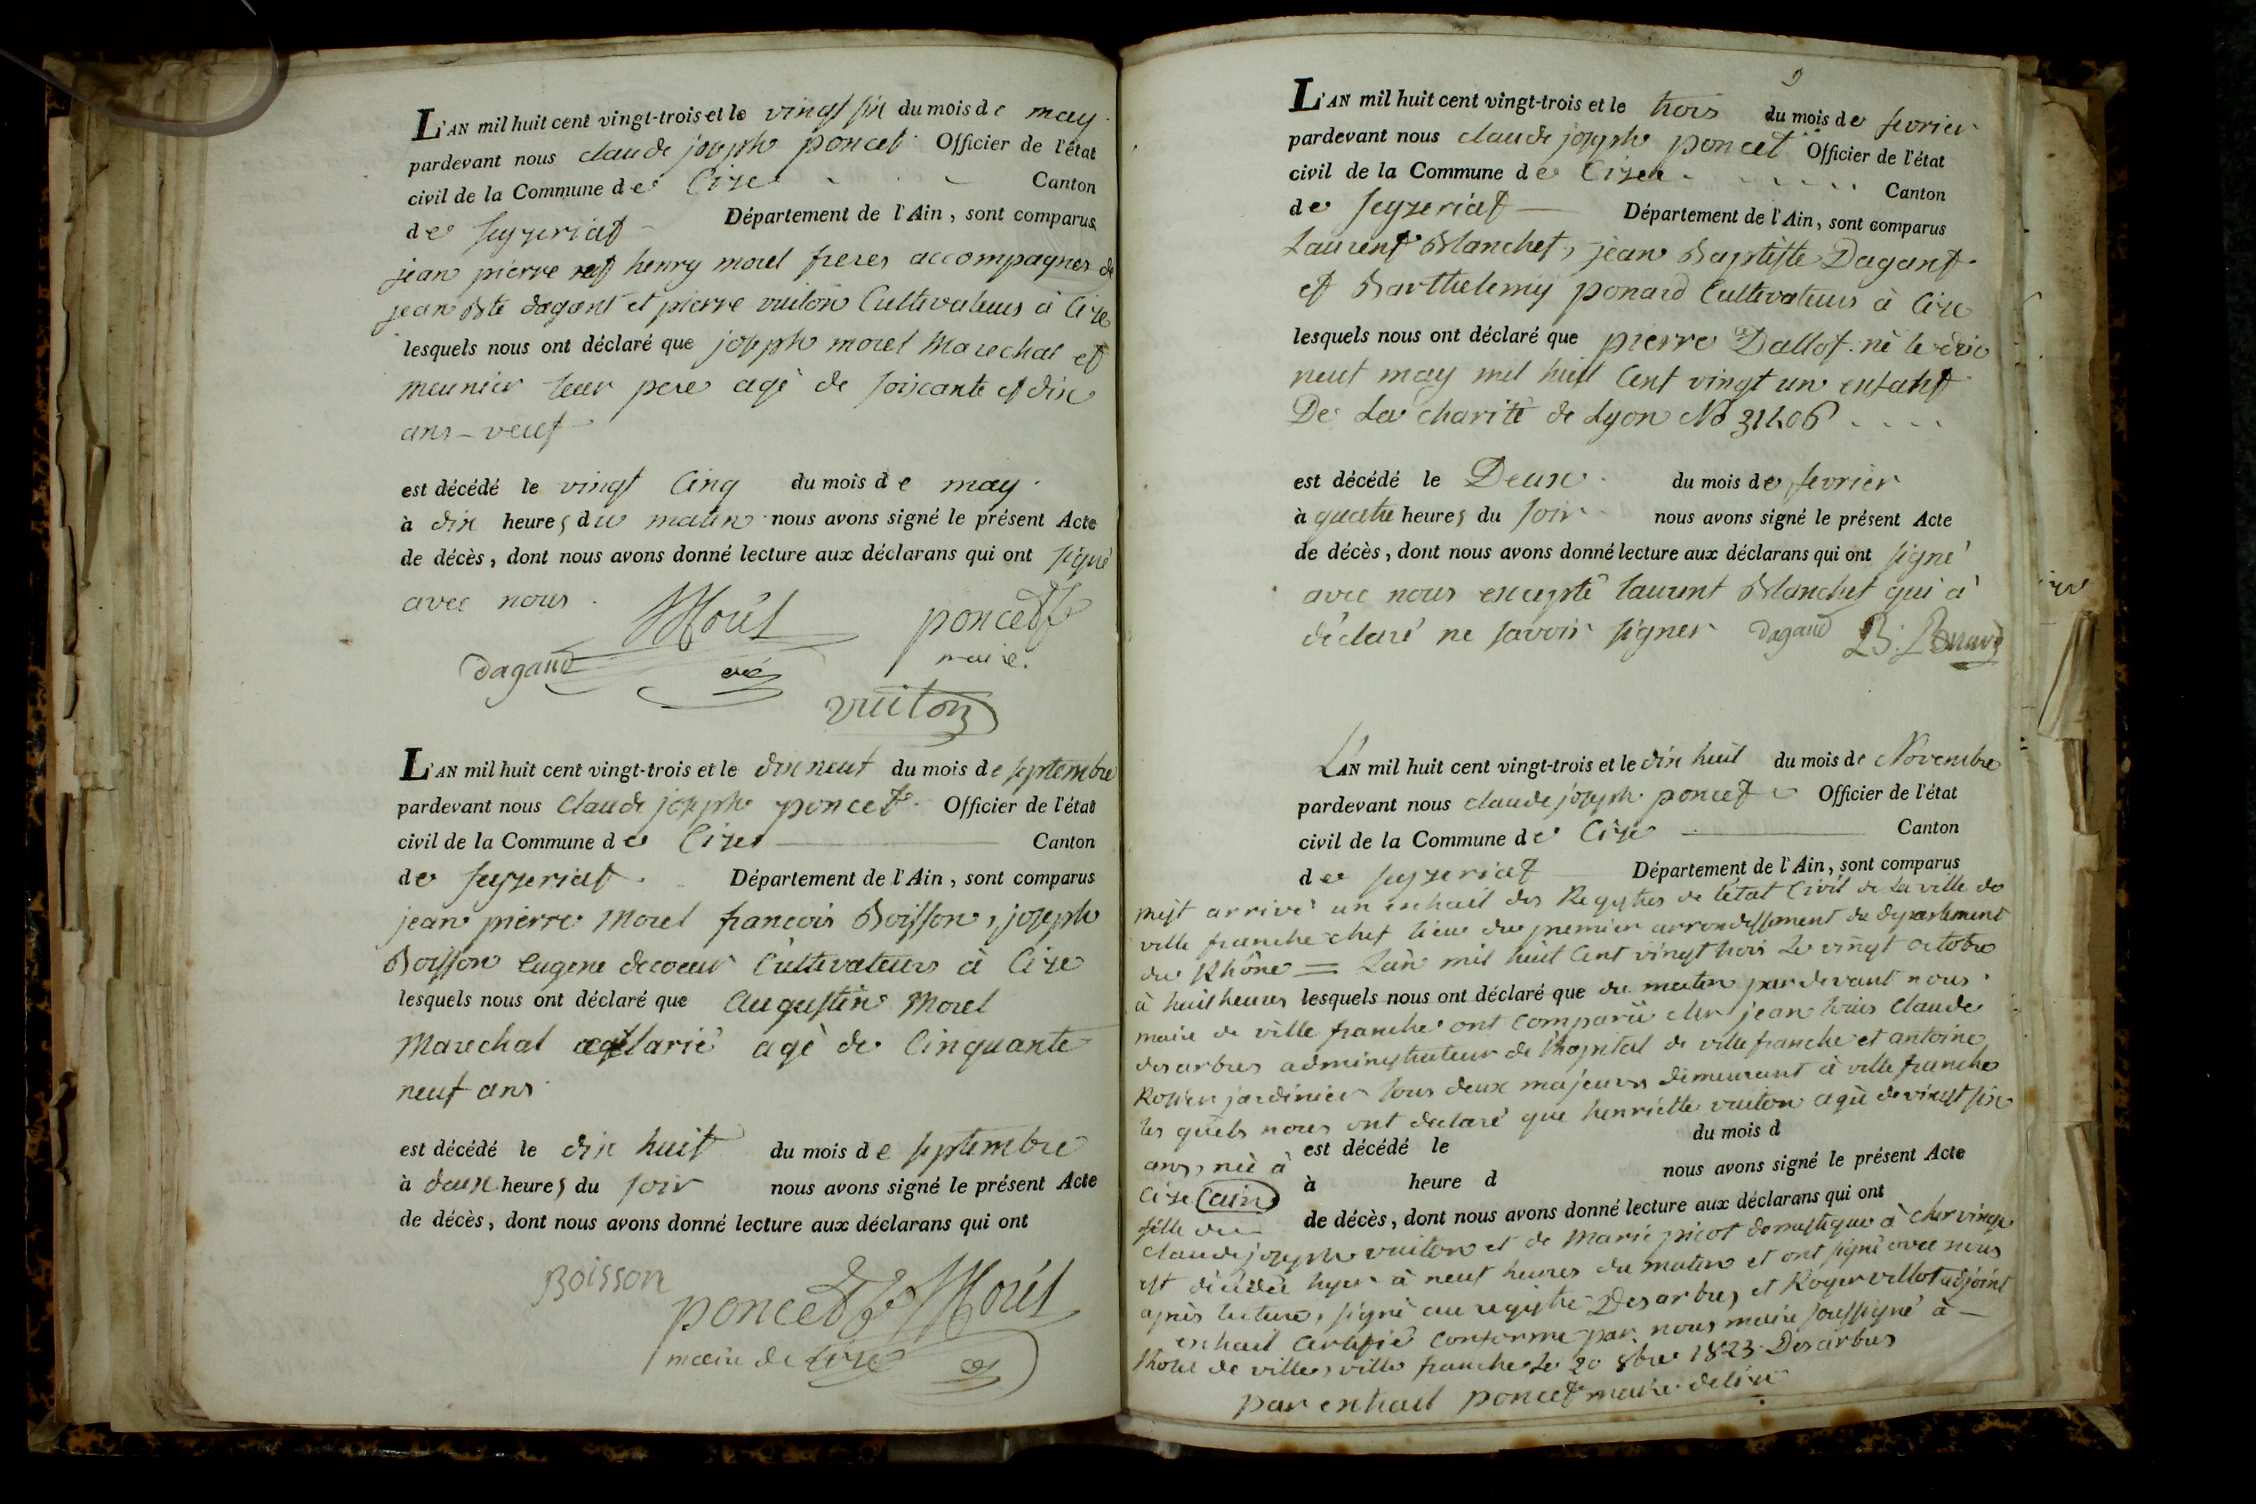 L'AN mil huit cent vingt-trois et le vingt six du mois de may
pardevant nous claude joseph poncet Officier de l'état
civil de la Commune de Cize Canton
de seyzeriat Département de l'Ain, sont comparus
jean pierre et henry morel freres accompagnes de
jean Bte dagant et pierre vuiton Cultivateurs à Cize
lesquels nous ont déclaré que joseph morel Marechal et
meunier leur pere agé de soixante et dix
ans - veuf
est décédé le vingt Cinq du mois de may
à dix heures du matin nous avons signé le présent Acte
de décès, dont nous avons donné lecture aux déclarans qui ont signé
avec nous
Morel poncet
dagand maire
vuiton
L'AN mil huit cent vingt-trois et le dix neuf du mois de septembre
pardevant nous Claude joseph poncet Officier de l'état
civil de la Commune de Cize Canton
de seyzeriat Département de l'Ain, sont comparus
jean pierre Morel francois Boisson, joseph
Boisson Eugene decoeur Cultivateurs à Cize
lesquels nous ont déclaré que Augustin Morel
Marechal agé de Cinquante
neuf ans
est décédé le dix huit du mois de septembre
à deux heures du soir nous avons signé le présent Acte
de décès, dont nous avons donné lecture aux déclarans qui ont
Boisson
poncet Morel
maire de Cize
9
L'AN mil huit cent vingt-trois et le trois du mois de fevrier
pardevant nous claude joseph poncet Officier de l'état
civil de la Commune de Cize Canton
de seyzeriat Département de l'Ain, sont comparus
Laurent Blanchet, jean Baptiste Dagant
et Barthelemy ponard Cultivateurs à Cize
lesquels nous ont déclaré que pierre Dallot né le dix
neuf may mil huit Cent vingt un enfant
De La charité de Lyon No 31406
est décédé le Deux du mois de fevrier
à quatre heures du soir nous avons signé le présent Acte
de décès, dont nous avons donné lecture aux déclarans qui ont signé
avec nous excepté laurent Blanchet qui à
déclaré ne savoir signer dagand B. Ponard
L'AN mil huit cent vingt-trois et le dix huit du mois de Novembre
pardevant nous claude joseph poncet Officier de l'état
civil de la Commune de Cize Canton
de seyzeriat Département de l'Ain, sont comparus
m'est arrivé un extrait des Registres de l'état Civil de La ville de
ville franche chef lieu du premier arrondissement du departement
du Rhône = L'an mil huit Cent vingt trois Le vingt octobre
à huit heures lesquels nous ont déclaré que du matin par devant nous
maire de ville franche ont Comparu jean Louis Claude
desarbres administrateur de l'hopital de ville franche et antoine
jardinier tous deux majeurs demeurant à ville franche
les quels nous ont declaré que henriette vuiton agée de vingt six
est décédé le du mois d
ans, née à
à heure d nous avons signé le présent Acte
Cize (ain)
de décès, dont nous avons donné lecture aux déclarans qui ont
fille de
Claude joseph vuiton et de Marie picot domestique à
est décédée hyer à neuf heures du matin et ont signé avec nous
après lecture, signé au registre Desarbres et Roger villot adjoint
extrait Certifié Conforme par nous maire soussigné à
l'hotel de ville, ville franche le 20 8bre 1823 Desarbres
par extrait poncet maire